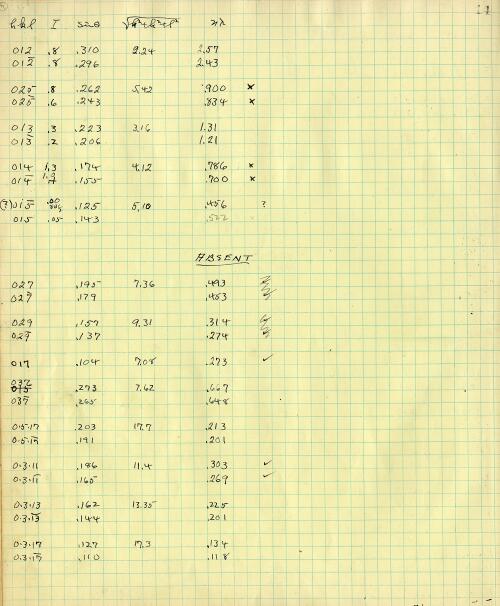 hkl I sin θ √h²+k²+l² nλ
012 .8 .310 2.24 2.57
012̄ .8 .296 2.43
025 .8 .262 5.42 .900 ×
025̄ .6 .243 .834 ×
013 .3 .223 3.16 1.31
013̄ .2 .206 1.21
014 1.3 .174 4.12 .786 ×
014̄ .155 .700 ×
(?) 015̄ .125 5.10 .456 ?
015 .05 .143 .522
ABSENT
027 .195 7.36 .493
027̄ .179 .453
029 .157 9.31 .314
029̄ .137 .274
017 .104 7.08 .273 ✓
037 .273 7.62 .667
037̄ .265 .648
0·5·17 .203 17.7 .213
0·5·17̄ .191 .201
0·3·11 .186 11.4 .303 ✓
0·3·11̄ .165 .269 ✓
0·3·13 .162 13.35 .225
0·3·13̄ .144 .201
0·3·17 .127 17.3 .134
0·3·17̄ .110 .118